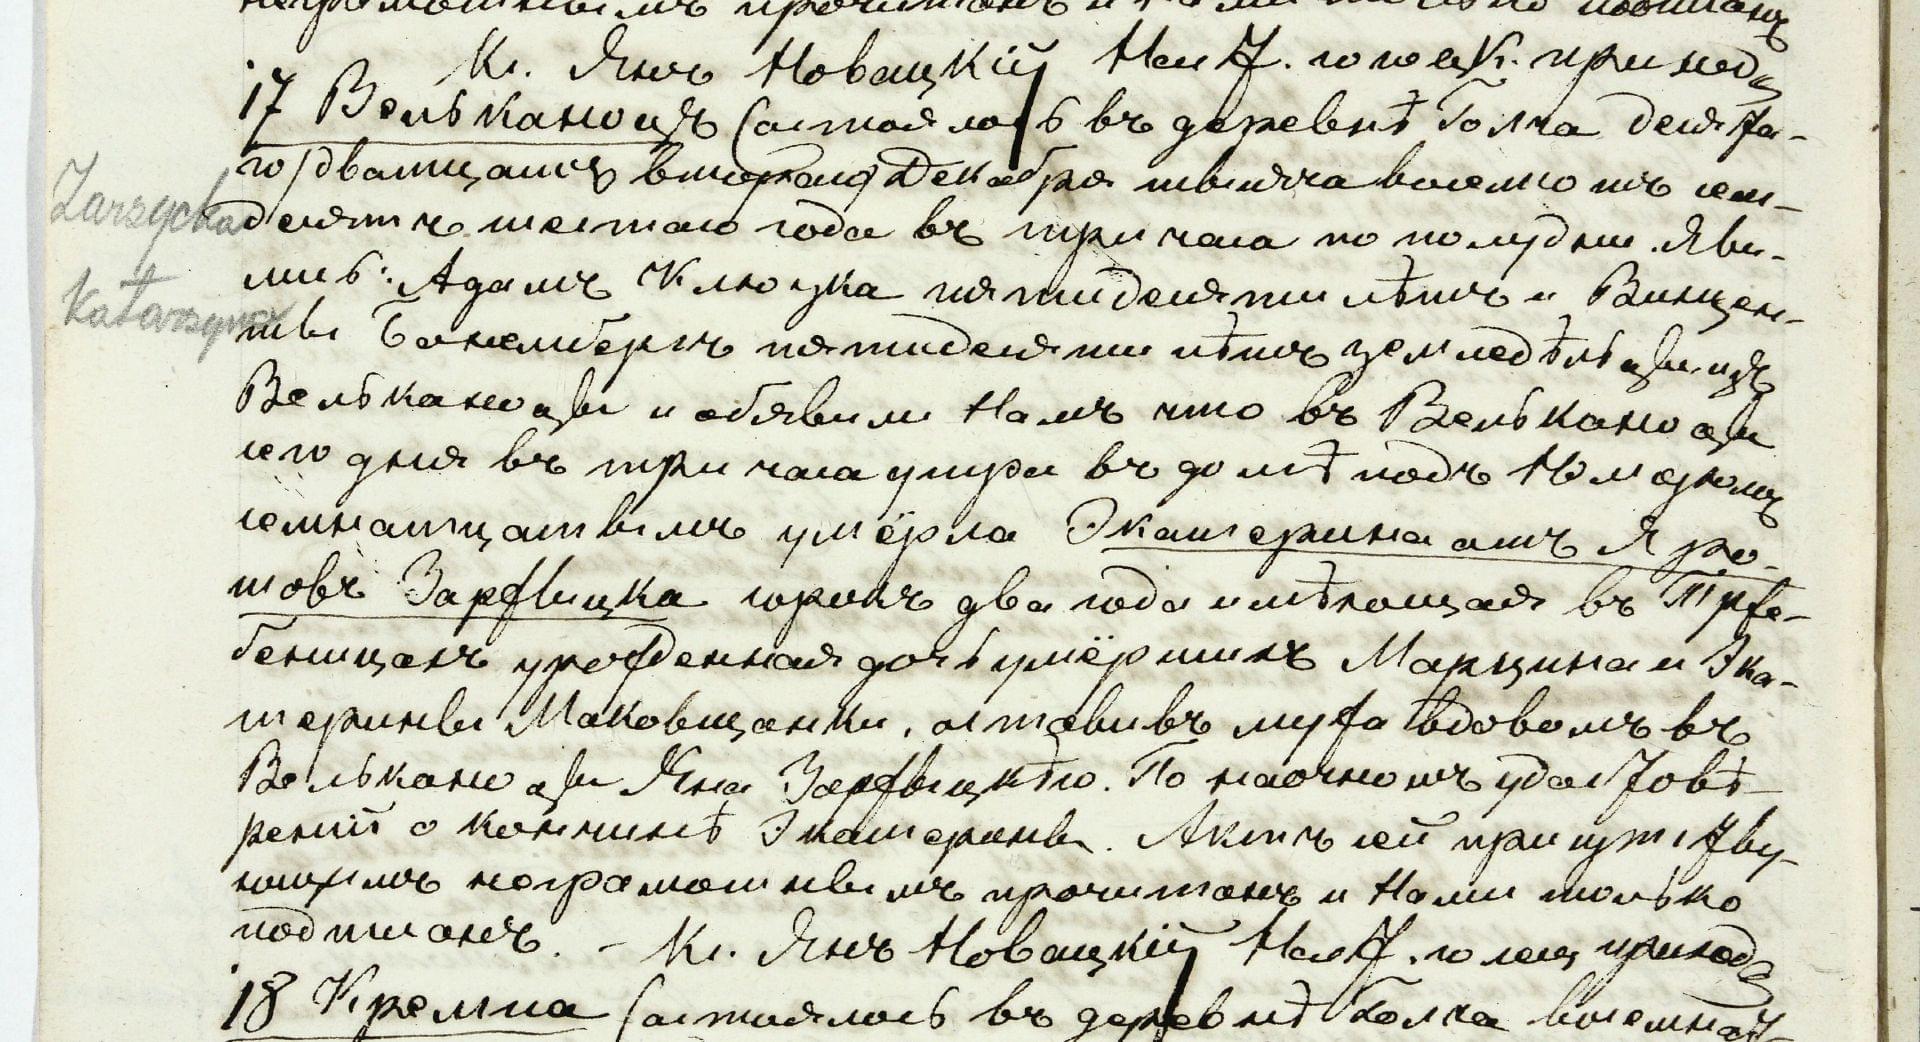 неграмотнымъ прочитанъ и Нами только подписанъ
Кс. Янъ Новацкій Наст. прихода
17 Вельканоцъ Состоялось въ деревнѣ Голча десята-
го/двадцать втораго/ Декабря тысяча восемьсотъ семь-
Zarzycka
десятъ шестаго года въ три часа по полудни. Яви-
лись: Адамъ Клюзка пятидесяти лѣтъ и Винцен-
Katarzyna
ты пятидесяти лѣтъ земледѣльцы изъ
Вельканоцы и обявили Намъ что въ Вельканоцы
сего дня въ три часа утра въ домѣ подъ Номеромъ
семнатцатымъ умёрла Экатерина отъ Яро-
шовъ Заржыцка сорокъ два года имѣющая въ Трже-
беницахъ урожденная дочь умёршихъ Марцина и Эка-
терины Маковщанки, оставивъ мужа вдовомъ въ
Вельканоцы Яна Заржыцкѣго. По наочномъ удостовѣ-
реніи о кончинѣ Экатерины. Актъ сей присутству-
ющимъ неграмотнымъ прочитанъ и Нами только
подписанъ. – Кс. Янъ Новацкій Наст. прихода
18 Кремпа Состоялось въ деревнѣ Голча восемнат-